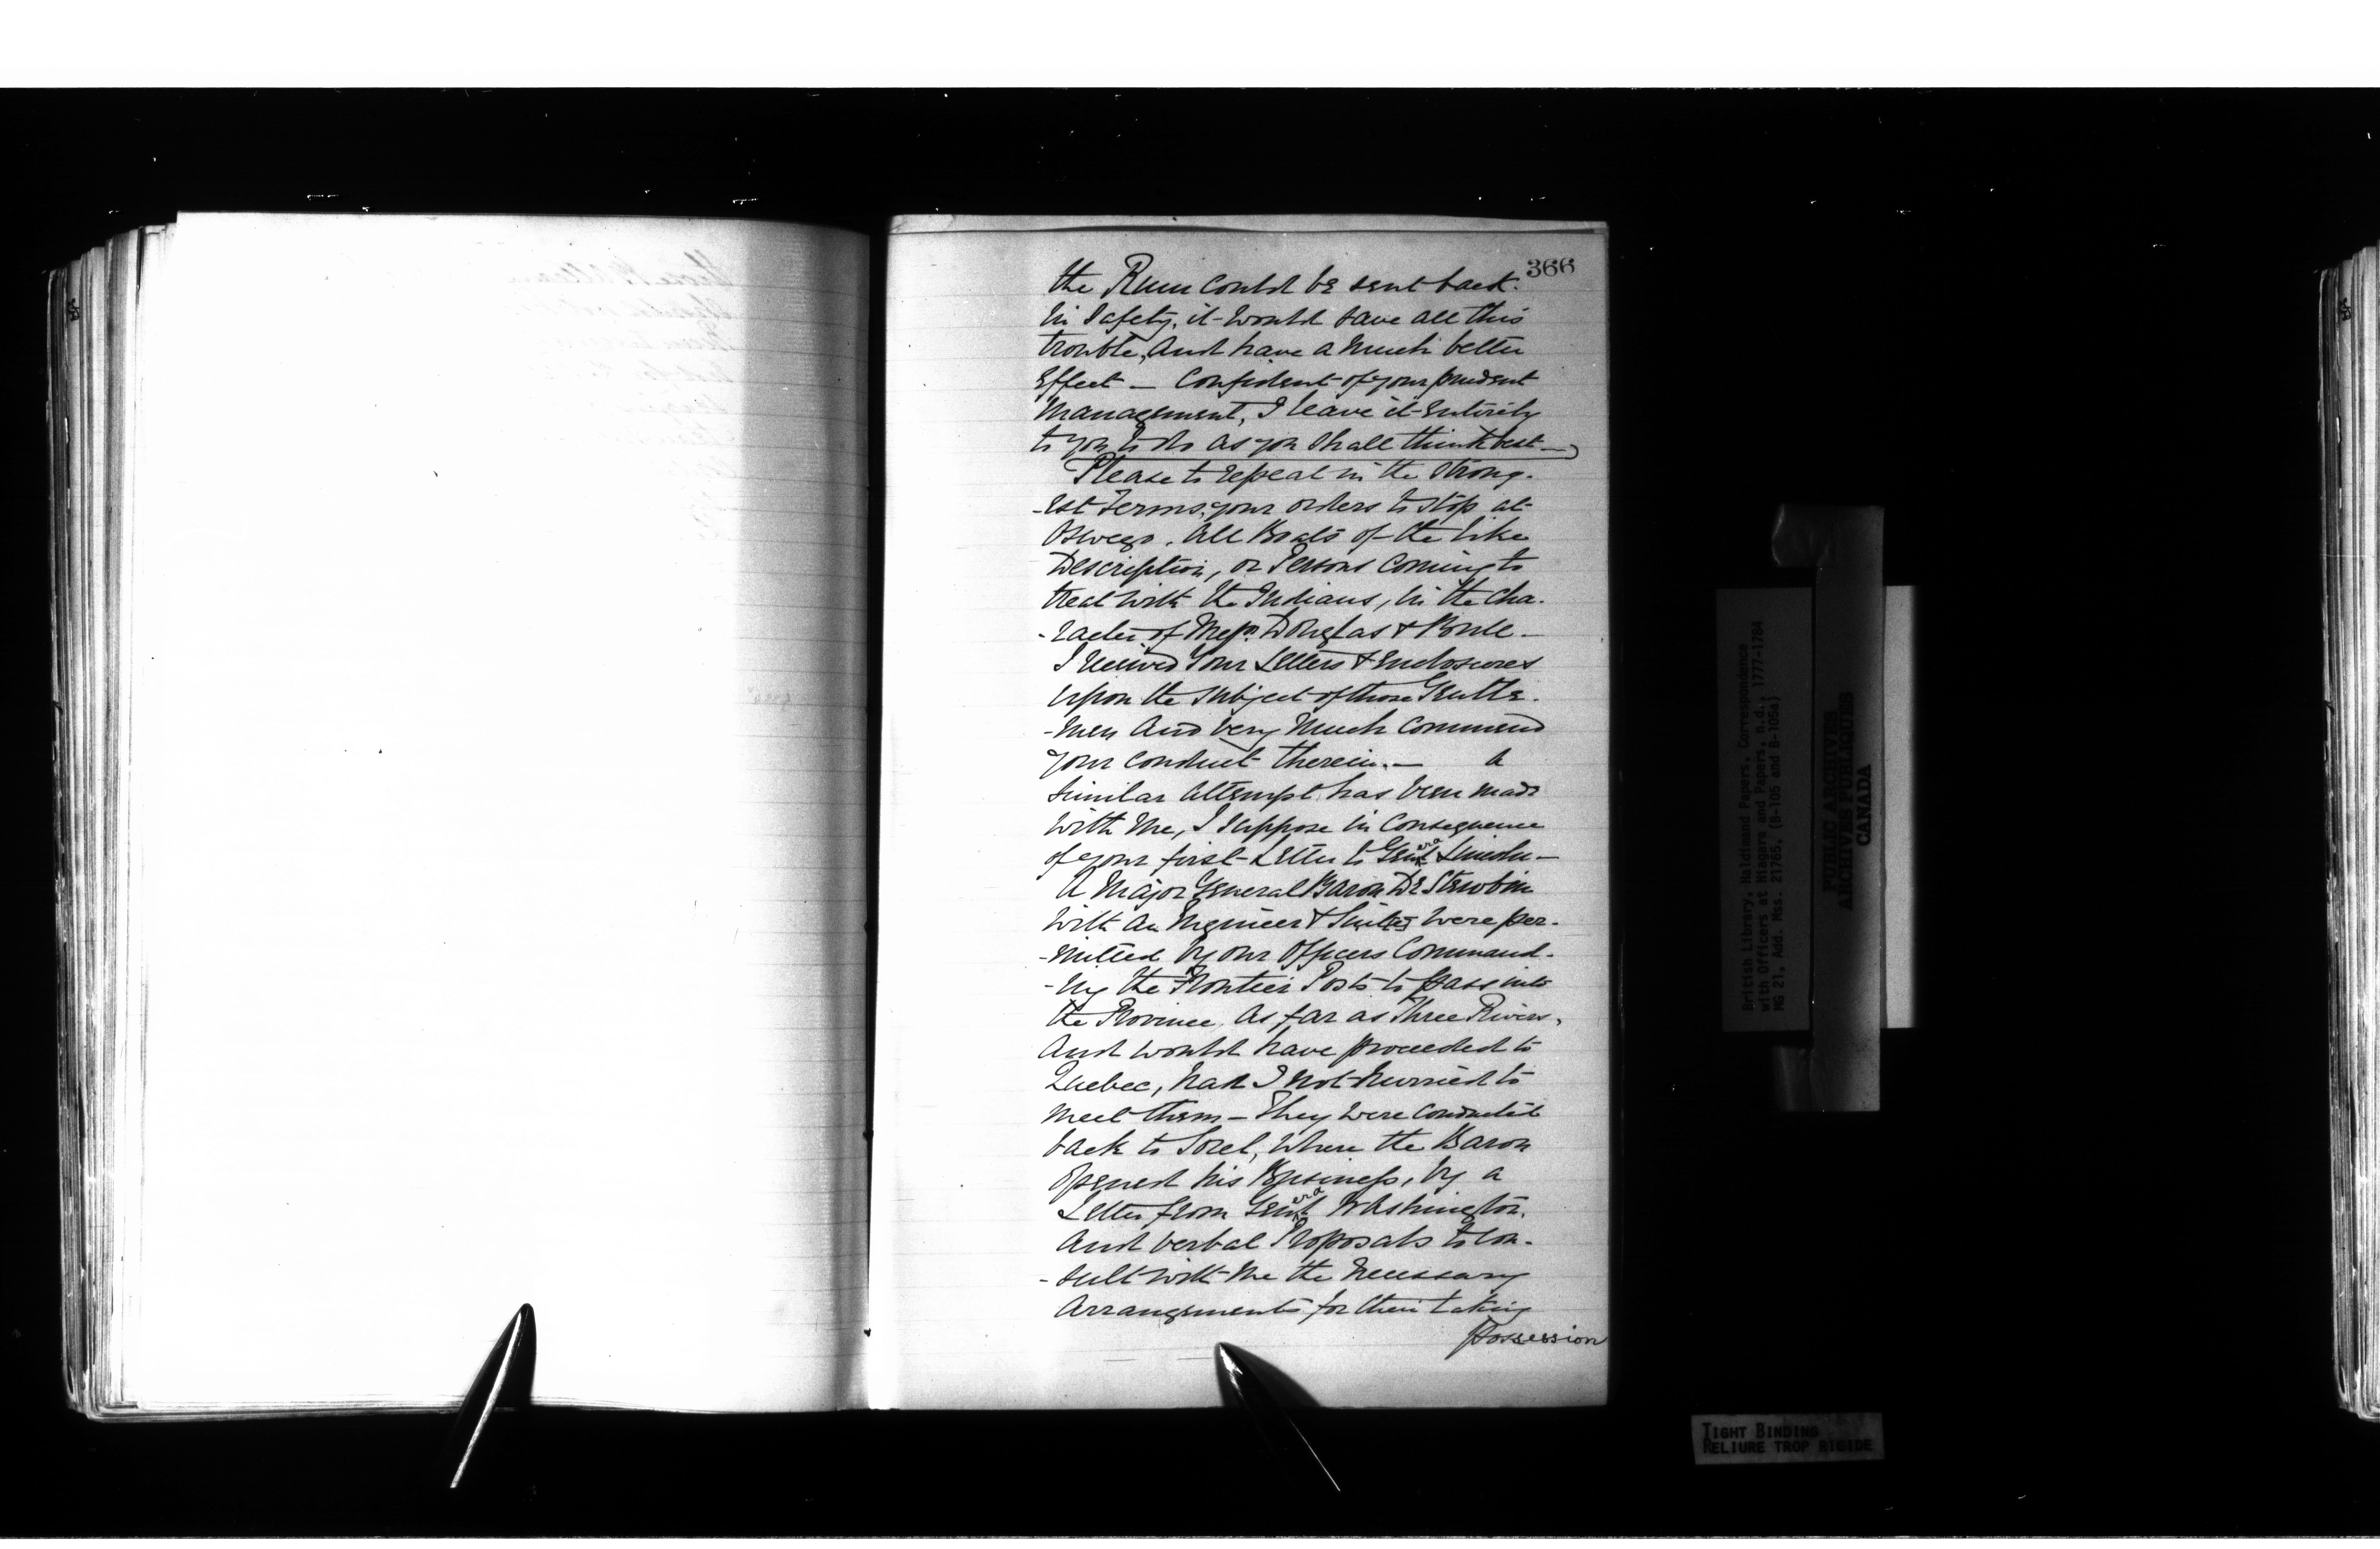 366
the Rum could be sent back.
in Safety, it would save all this
trouble, and have a much better
Effect — Confident of your prudent
Management, I leave it Entirely
to you to do as you shall think best —
Please to repeat in the strong-
-est Terms, your orders to stop at
Oswego, all Boats of the like
Description, or Persons coming to
treat with the Indians, in the Cha-
-racter of Messrs. Douglas &
I received your Letters & Enclosures
upon the subject of those Gentle-
-men and very much commend
your conduct therein. — A
similar attempt has been made
with me, I suppose in Consequence
of your first Letter to General Lincoln —
A Major General Baron De Steuben
with an Engineer & Suites were per-
-mitted by our Officers Command-
-ing the Frontier Posts to pass into
the Province as far as Three Rivers,
and would have proceeded to
Quebec, had I not hurried to
meet them — They were conducted
back to Sorel, where the Baron
opened his Business, by a
Letter from General Washington,
and verbal Proposals to con-
-sult with me the necessary
Arrangements for their taking
Possession
British Library, Haldimand Papers, Correspondence
with Officers at Niagara and Papers, n.d., 1777-1784
MG 21, Add. Mss. 21765, (B-105 and B-105a)
PUBLIC ARCHIVES
ARCHIVES PUBLIQUES
CANADA
TIGHT BINDING
RELIURE TROP RIGIDE